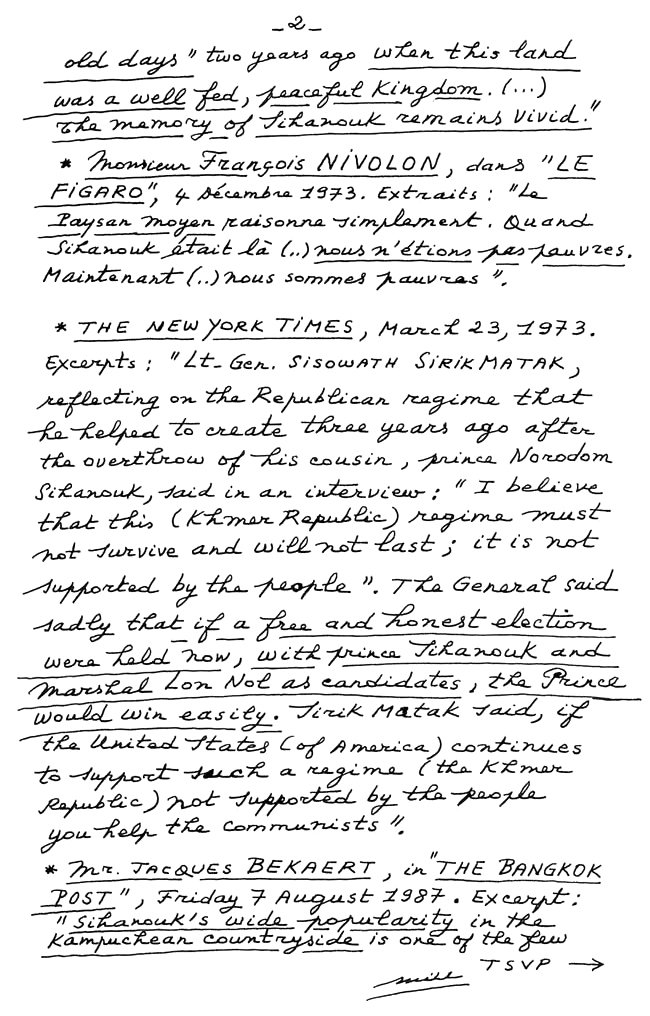 _2_
old days" two years ago when this land
was a well fed, peaceful Kingdom. (...)
The memory of Sihanouk remains vivid."
* Monsieur François NIVOLON, dans "LE
FIGARO", 4 décembre 1973. Extraits : "Le
Paysan moyen raisonne simplement. Quand
Sihanouk était là (..) nous n'étions pas pauvres.
Maintenant (..) nous sommes pauvres".
* THE NEW YORK TIMES, March 23, 1973.
Excerpts : "Lt-Gen. SISOWATH SIRIK MATAK,
reflecting on the Republican regime that
he helped to create three years ago after
the overthrow of his cousin, prince Norodom
Sihanouk, said in an interview : "I believe
that this (Khmer Republic) regime must
not survive and will not last ; it is not
supported by the people". The General said
sadly that if a free and honest election
were held now, with prince Sihanouk and
Marshal Lon Nol as candidates, the Prince
would win easily. Sirik Matak said, if
the United States (of America) continues
to support such a regime (the Khmer
Republic) not supported by the people
you help the communists".
* Mr. JACQUES BEKAERT, in "THE BANGKOK
POST", Friday 7 August 1987. Excerpt :
"Sihanouk's wide popularity in the
Kampuchean countryside is one of the few
TSVP →